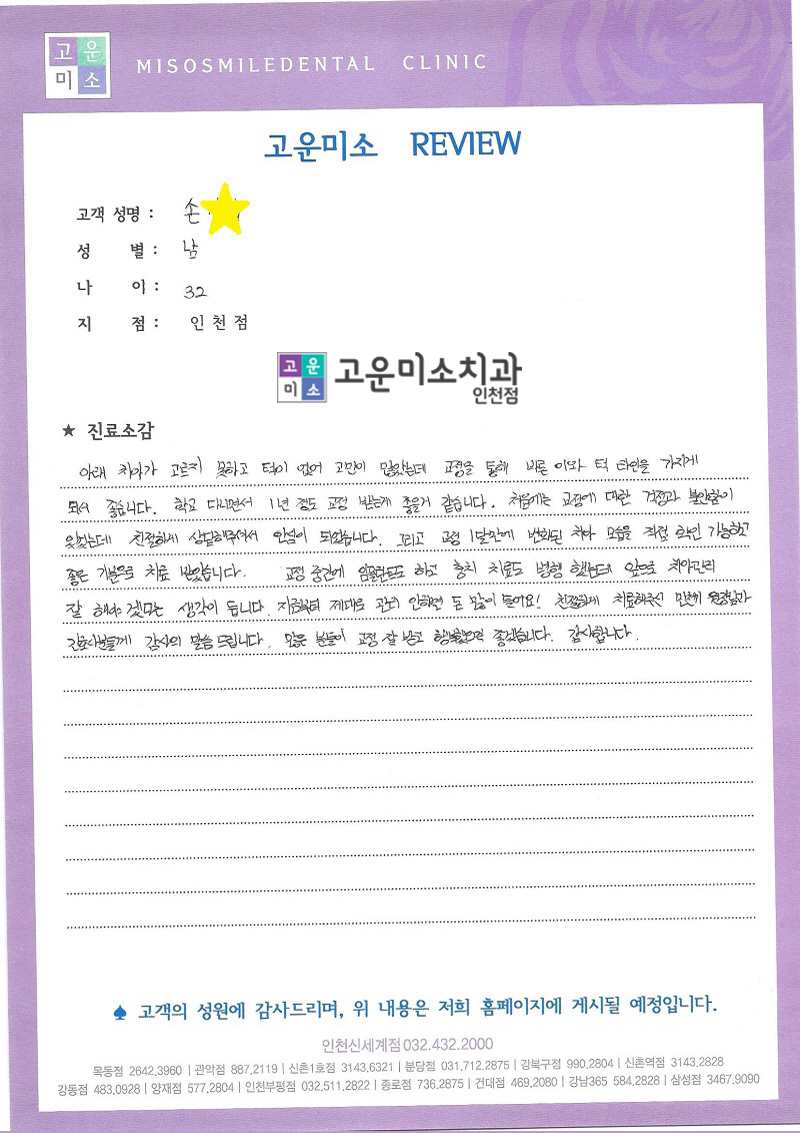 고운
미소
MISOSMILEDENTAL CLINIC
고운미소 REVIEW
고객 성명 : 손
성 별 : 남
나 이 : 32
지 점 : 인천점
고운
미소
고운미소치과
인천점
★ 진료소감
아래 치아가 고르지 못하고 턱이 없어 고민이 많았는데 교정을 통해 바른 이와 턱 라인을 가지게
되서 좋습니다. 학교 다니면서 1년 정도 교정 받는게 좋을거 같습니다. 처음에는 교정에 대한 걱정과 불안함이
있었는데 친절하게 상담해주셔서 안심이 되었습니다. 그리고 교정 1달만에 변화된 치아 모습을 직접 확인 가능하고
좋은 기분으로 치료 받았습니다. 교정 중간에 임플란트도 하고 충치 치료도 병행 했는데 앞으로 치아관리
잘 해야 겠다는 생각이 듭니다. 지금부터 제대로 관리 안하면 돈 많이 들어요! 친절하게 치료해주신 원장님과
간호사분들께 감사의 말씀 드립니다. 많은 분들이 교정 잘 받고 행복했으면 좋겠습니다. 감사합니다.
♠ 고객의 성원에 감사드리며, 위 내용은 저희 홈페이지에 게시될 예정입니다.
인천신세계점 032.432.2000
목동점 2642.3960 | 관악점 887.2119 | 신촌1호점 3143.6321 | 분당점 031.712.2875 | 강북구점 990.2804 | 신촌역점 3143.2828
강동점 483.0928 | 양재점 577.2804 | 인천부평점 032.511.2822 | 종로점 736.2875 | 건대점 469.2080 | 강남365 584.2828 | 삼성점 3467.9090